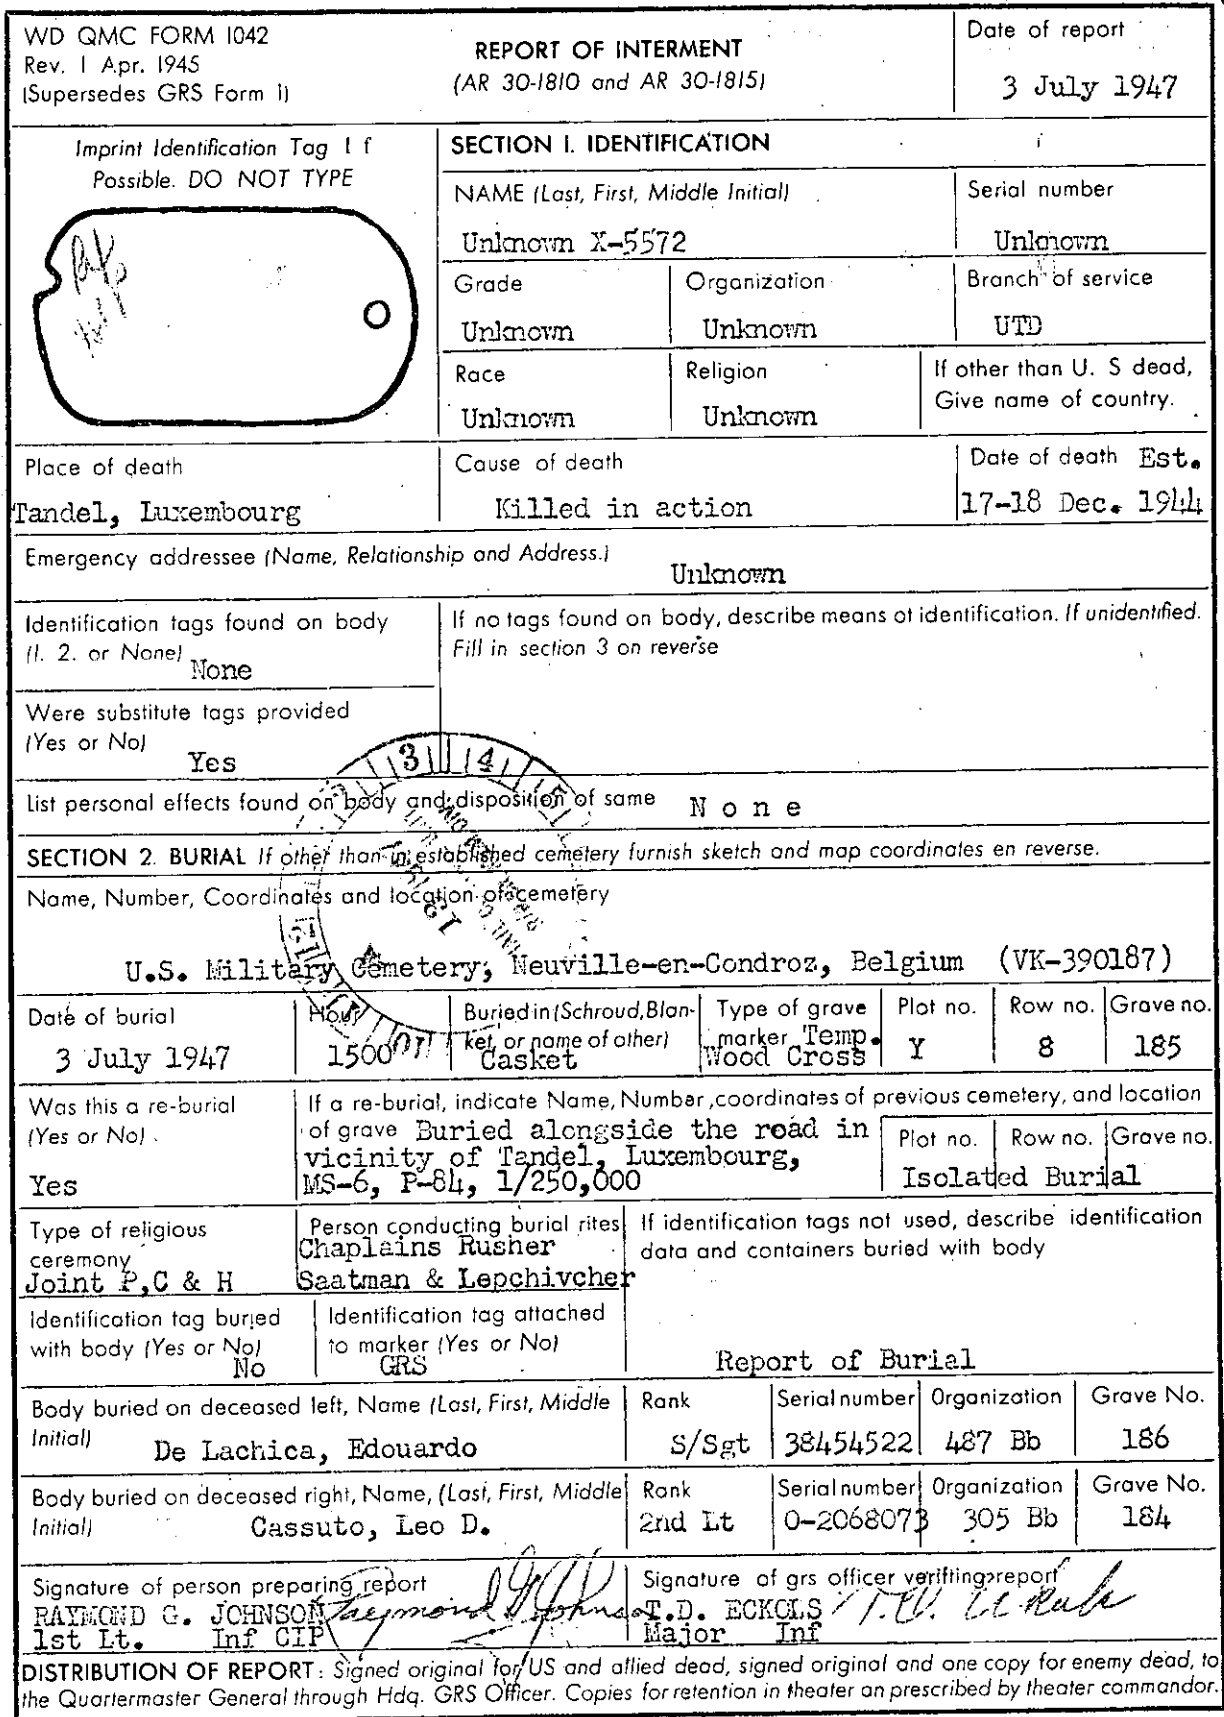 WD QMC FORM 1042
Rev. 1 Apr. 1945
(Supersedes GRS Form 1)
REPORT OF INTERMENT
(AR 30-1810 and AR 30-1815)
Date of report
3 July 1947
Imprint Identification Tag I f
Possible. DO NOT TYPE
SECTION I. IDENTIFICATION
NAME (Last, First, Middle Initial)
Unknown X-5572
Serial number
Unknown
Grade
Unknown
Organization
Unknown
Branch of service
UTD
Race
Unknown
Religion
Unknown
If other than U. S dead,
Give name of country.
Place of death
Tandel, Luxembourg
Cause of death
Killed in action
Date of death Est.
17-18 Dec. 1944
Emergency addressee (Name, Relationship and Address.)
Unknown
Identification tags found on body
(1. 2. or None)
None
If no tags found on body, describe means of identification. If unidentified.
Fill in section 3 on reverse
Were substitute tags provided
(Yes or No)
Yes
List personal effects found on body and disposition of same N o n e
SECTION 2. BURIAL If other than in established cemetery furnish sketch and map coordinates en reverse.
Name, Number, Coordinates and location of cemetery
U.S. Military Cemetery, Neuville-en-Condroz, Belgium (VK-390187)
Date of burial
3 July 1947
Hour
1500
Buried in (Schroud, Blan-
ket, or name of other)
Casket
Type of grave
marker Temp.
Wood Cross
Plot no.
Y
Row no.
8
Grave no.
185
Was this a re-burial
(Yes or No)
Yes
If a re-burial, indicate Name, Number, coordinates of previous cemetery, and location
of grave Buried alongside the road in
vicinity of Tandel, Luxembourg,
MS-6, P-84, 1/250,000
Plot no. Row no. Grave no.
Isolated Burial
Type of religious
ceremony
Joint P,C & H
Person conducting burial rites
Chaplains Rusher
Saatman & Lepchivcher
If identification tags not used, describe identification
data and containers buried with body
Identification tag buried
with body (Yes or No)
No
Identification tag attached
to marker (Yes or No)
GRS
Report of Burial
Body buried on deceased left, Name (Last, First, Middle
Initial)
De Lachica, Edouardo
Rank
S/Sgt
Serial number
38454522
Organization
487 Bb
Grave No.
186
Body buried on deceased right, Name, (Last, First, Middle
Initial)
Cassuto, Leo D.
Rank
2nd Lt
Serial number
0-2068073
Organization
305 Bb
Grave No.
184
Signature of person preparing report
RAYMOND G. JOHNSON Raymond G Johnson
1st Lt. Inf CIP
Signature of grs officer verifting report
T.D. ECKOLS
Major Inf
DISTRIBUTION OF REPORT: Signed original for US and allied dead, signed original and one copy for enemy dead, to
the Quartermaster General through Hdq. GRS Officer. Copies for retention in theater an prescribed by theater commandor.